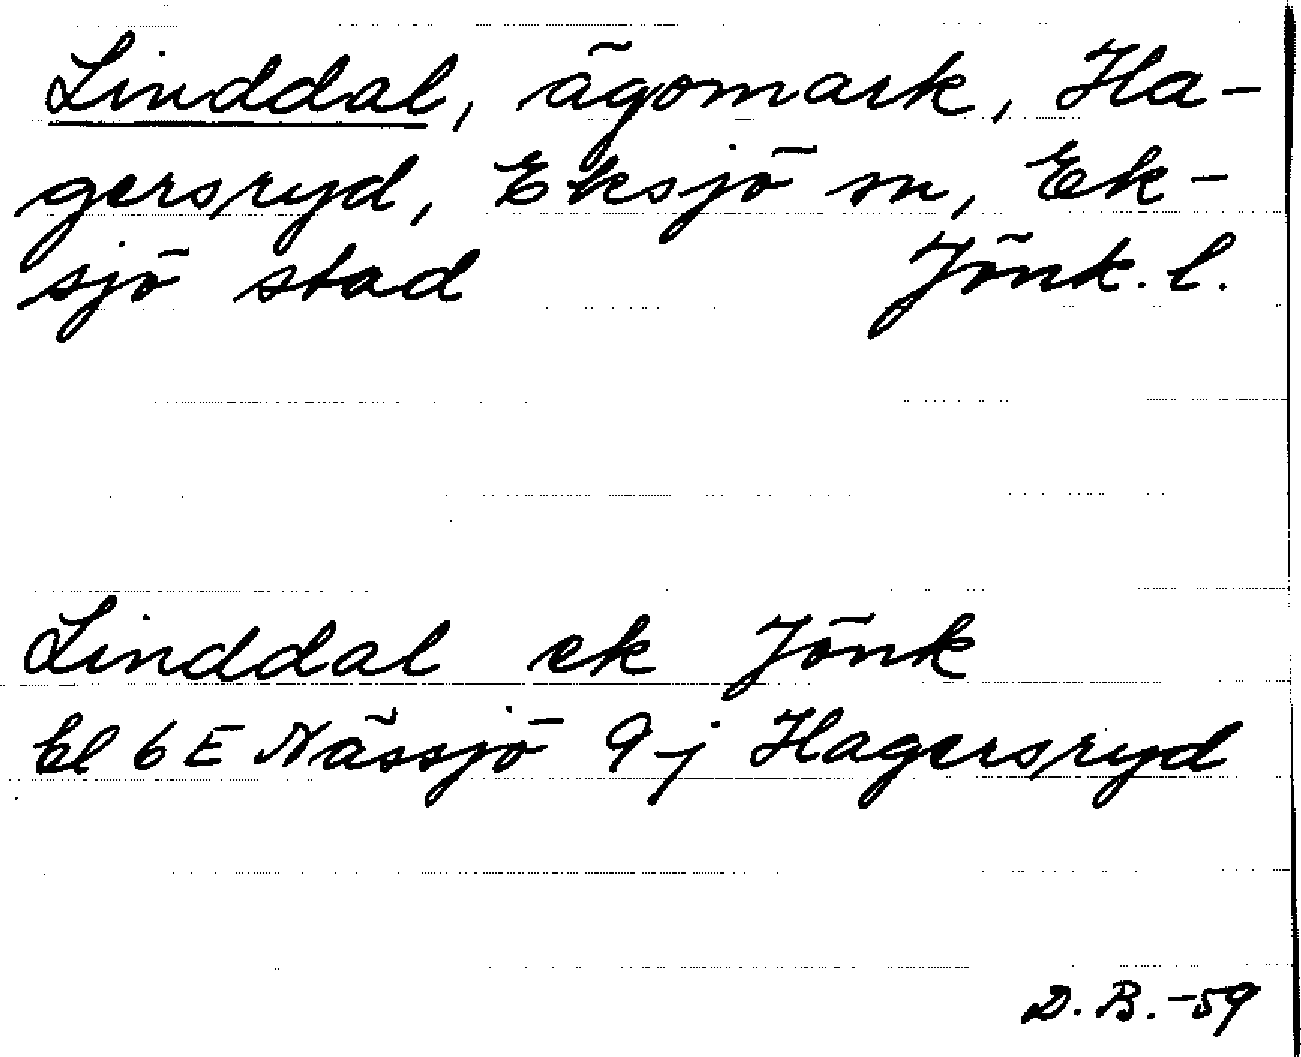 Linddal, ägomark, Ha-
gersryd, Eksjö sn, Ek-
sjö stad Jönk. l.
Linddal ek Jönk
bl 6 E Nässjö 9 j Hagersryd
D. B. -59